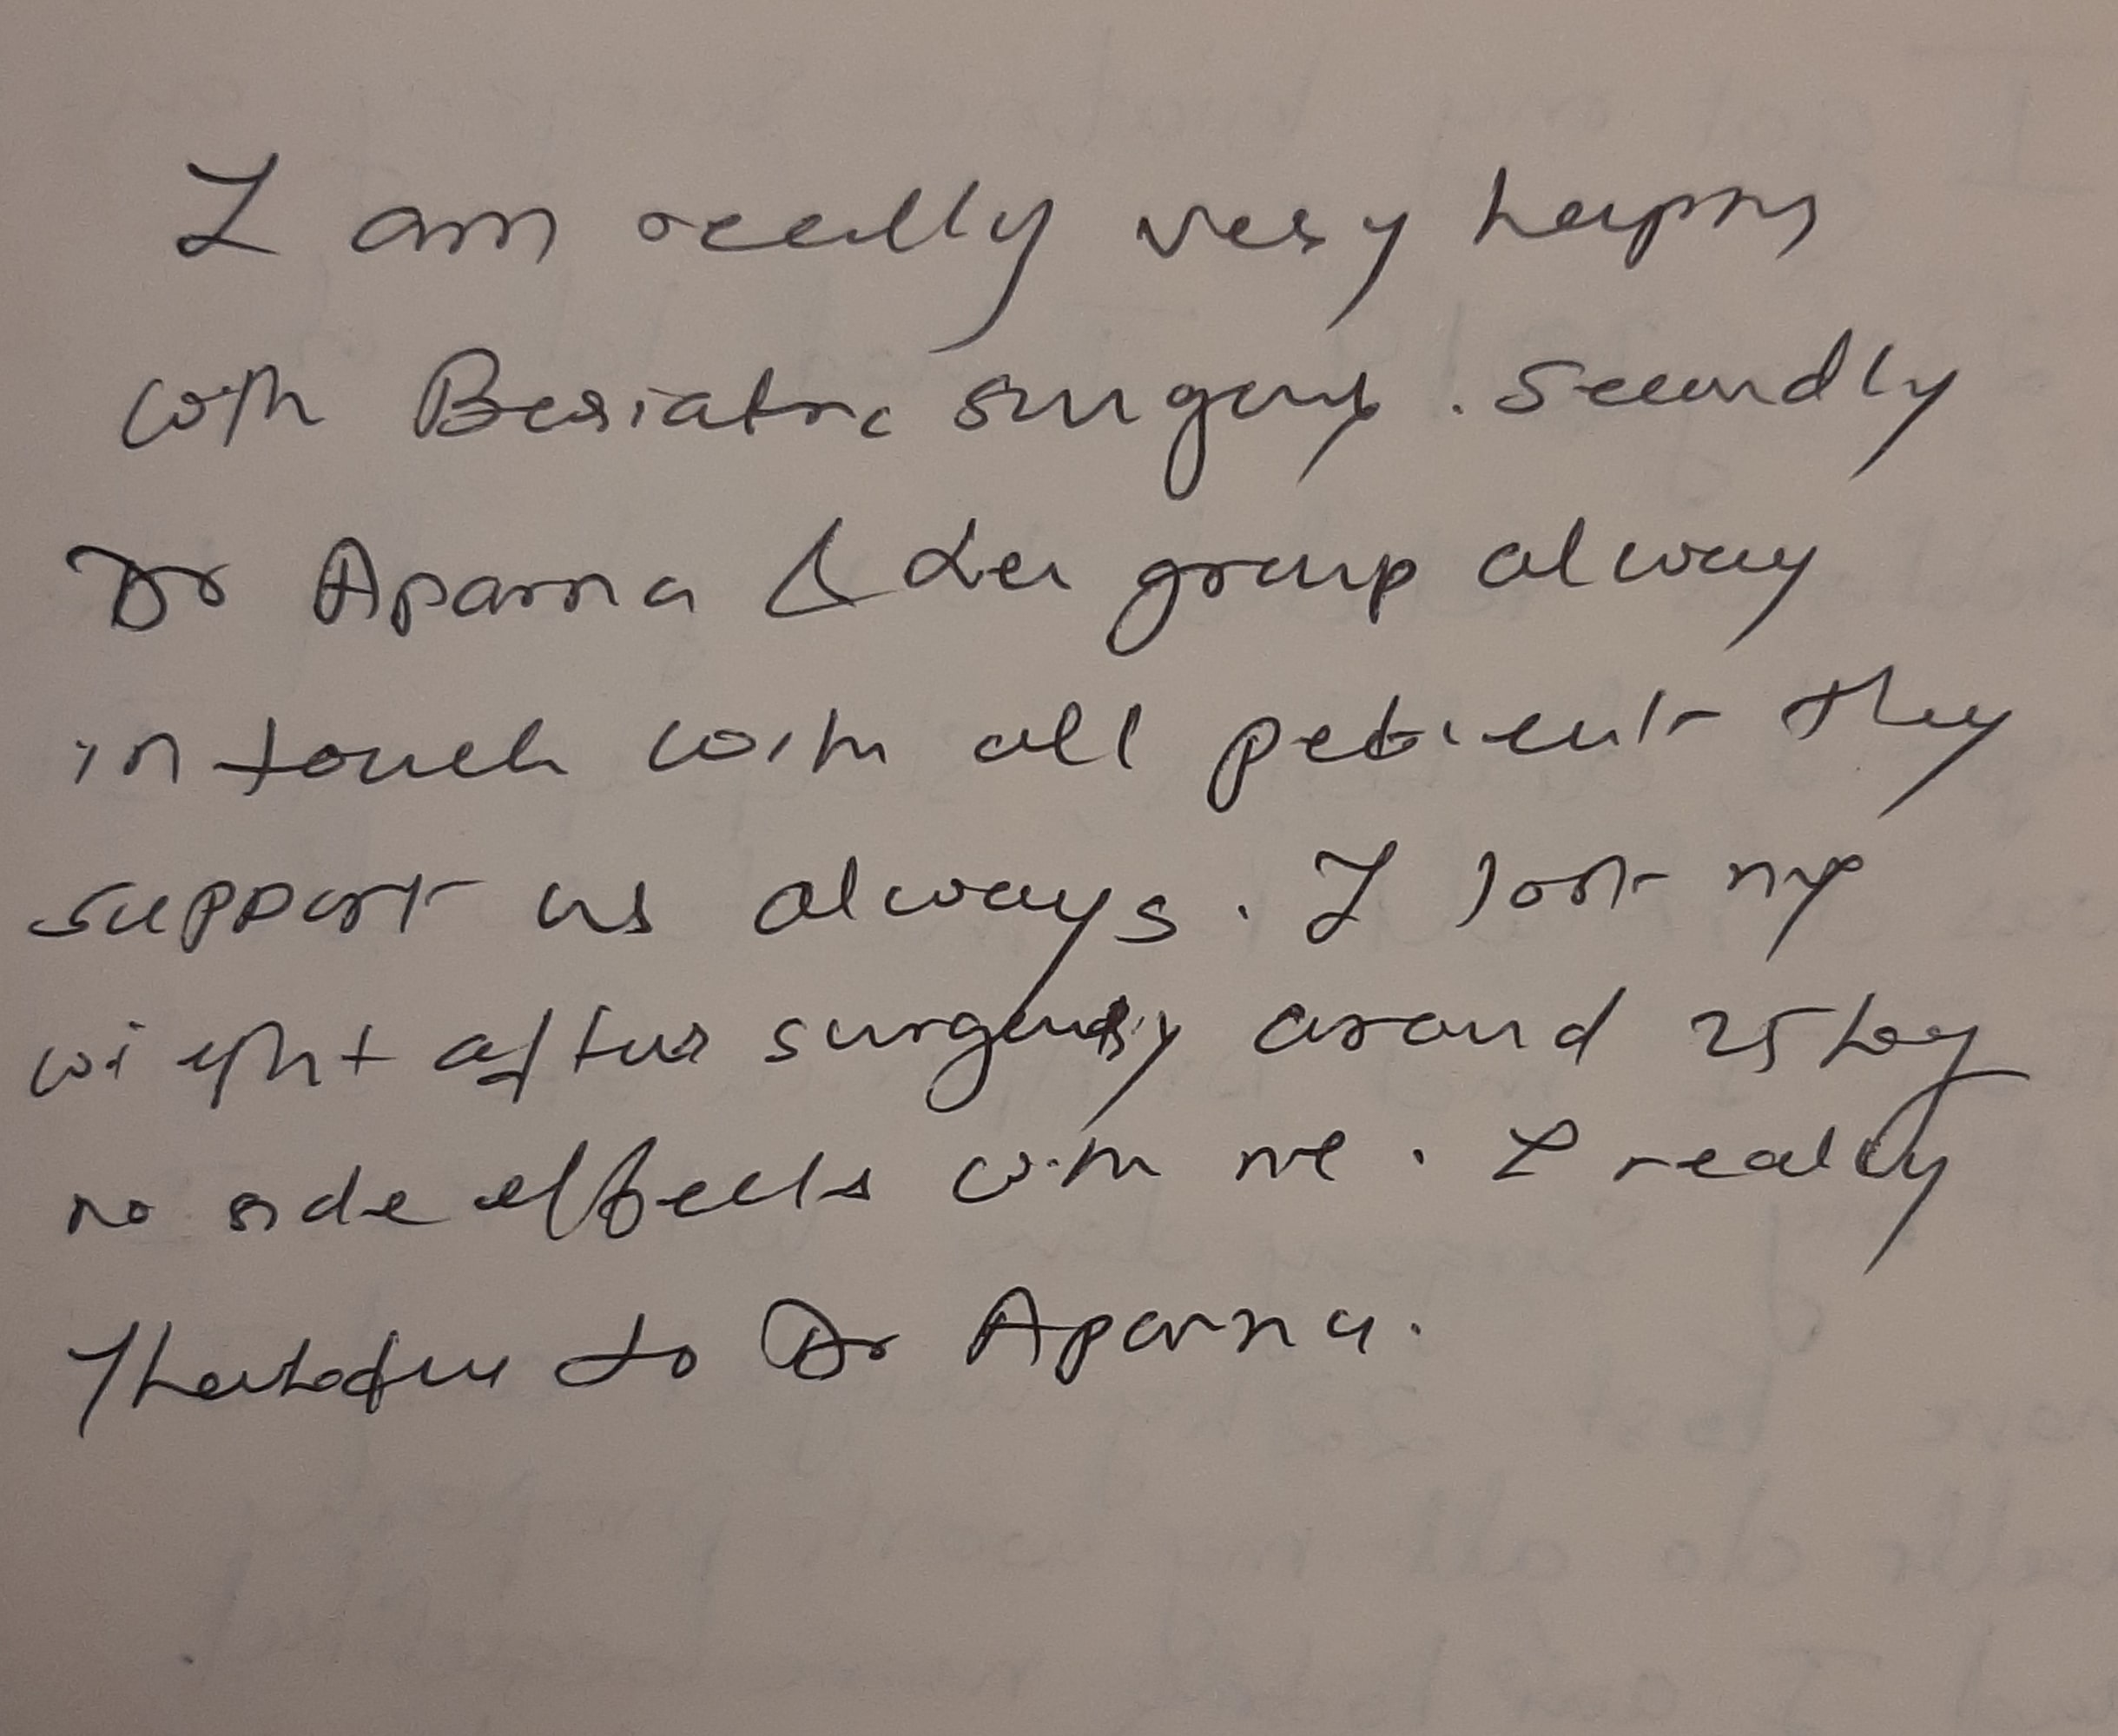 I am really very happy
with Beriatric surgery. Secondly
Dr Aparna & her group alway
in touch with all patient they
support us always. I lost my
wieght after surgery around 25 kg
no side effects with me. I really
Thankful to Dr Aparna.